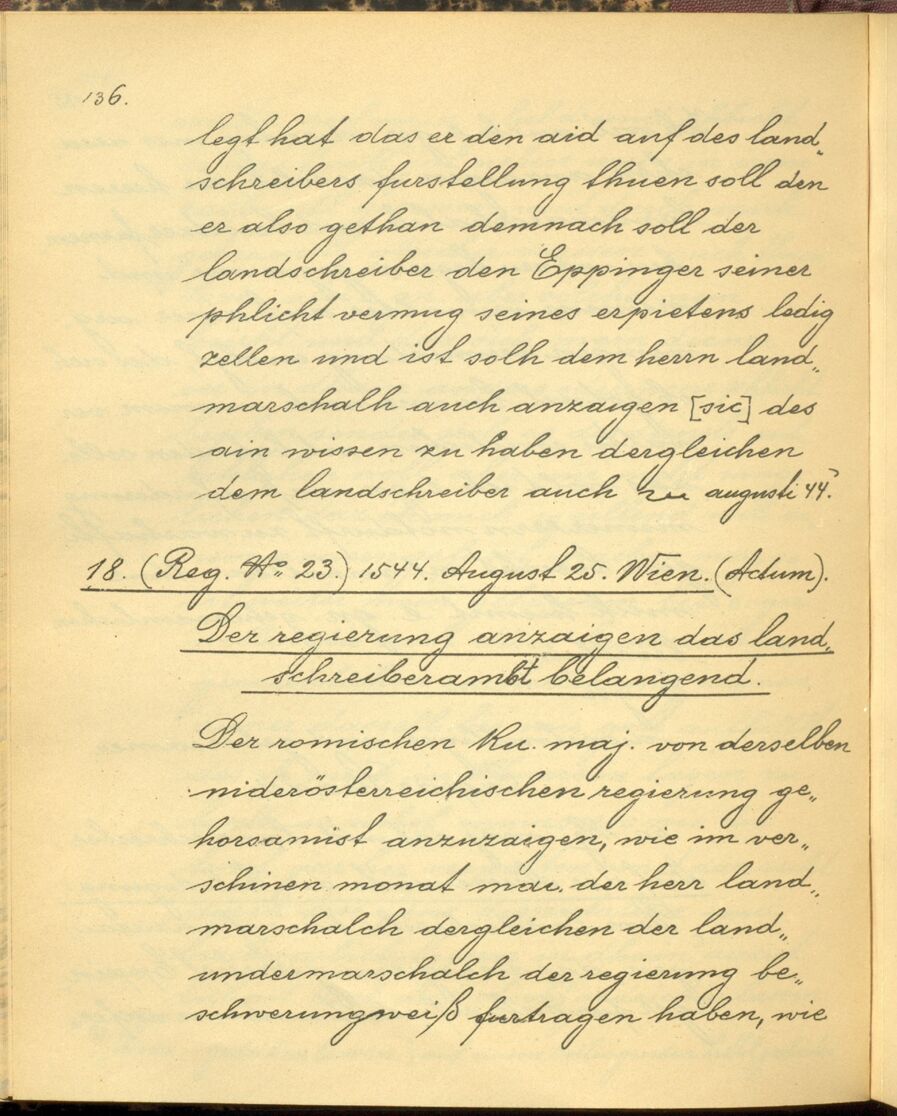 136.
legt hat das er den aid auf des land„
schreibers furstellung thuen soll den
er also gethan demnach soll der
landschreiber den Eppinger seiner
phlicht vermug seines erpietens ledig
zellen und ist solh dem herrn land„
marschalh auch anzaigen [sic] des
ain wissen zu haben dergleichen
dem landschreiber auch augusti 44.
18. (Reg. No. 23.) 1544. August 25. Wien. (Actum).
Der regierung anzaigen das land„
schreiberambt belangend.
Der romischen Ku. maj. von derselben
niderösterreichischen regierung ge„
horsamist anzuzaigen, wie im ver„
schinen monat mai der herr land„
marschalch dergleichen der land„
undermarschalch der regierung be„
schwerungweiß furtragen haben, wie